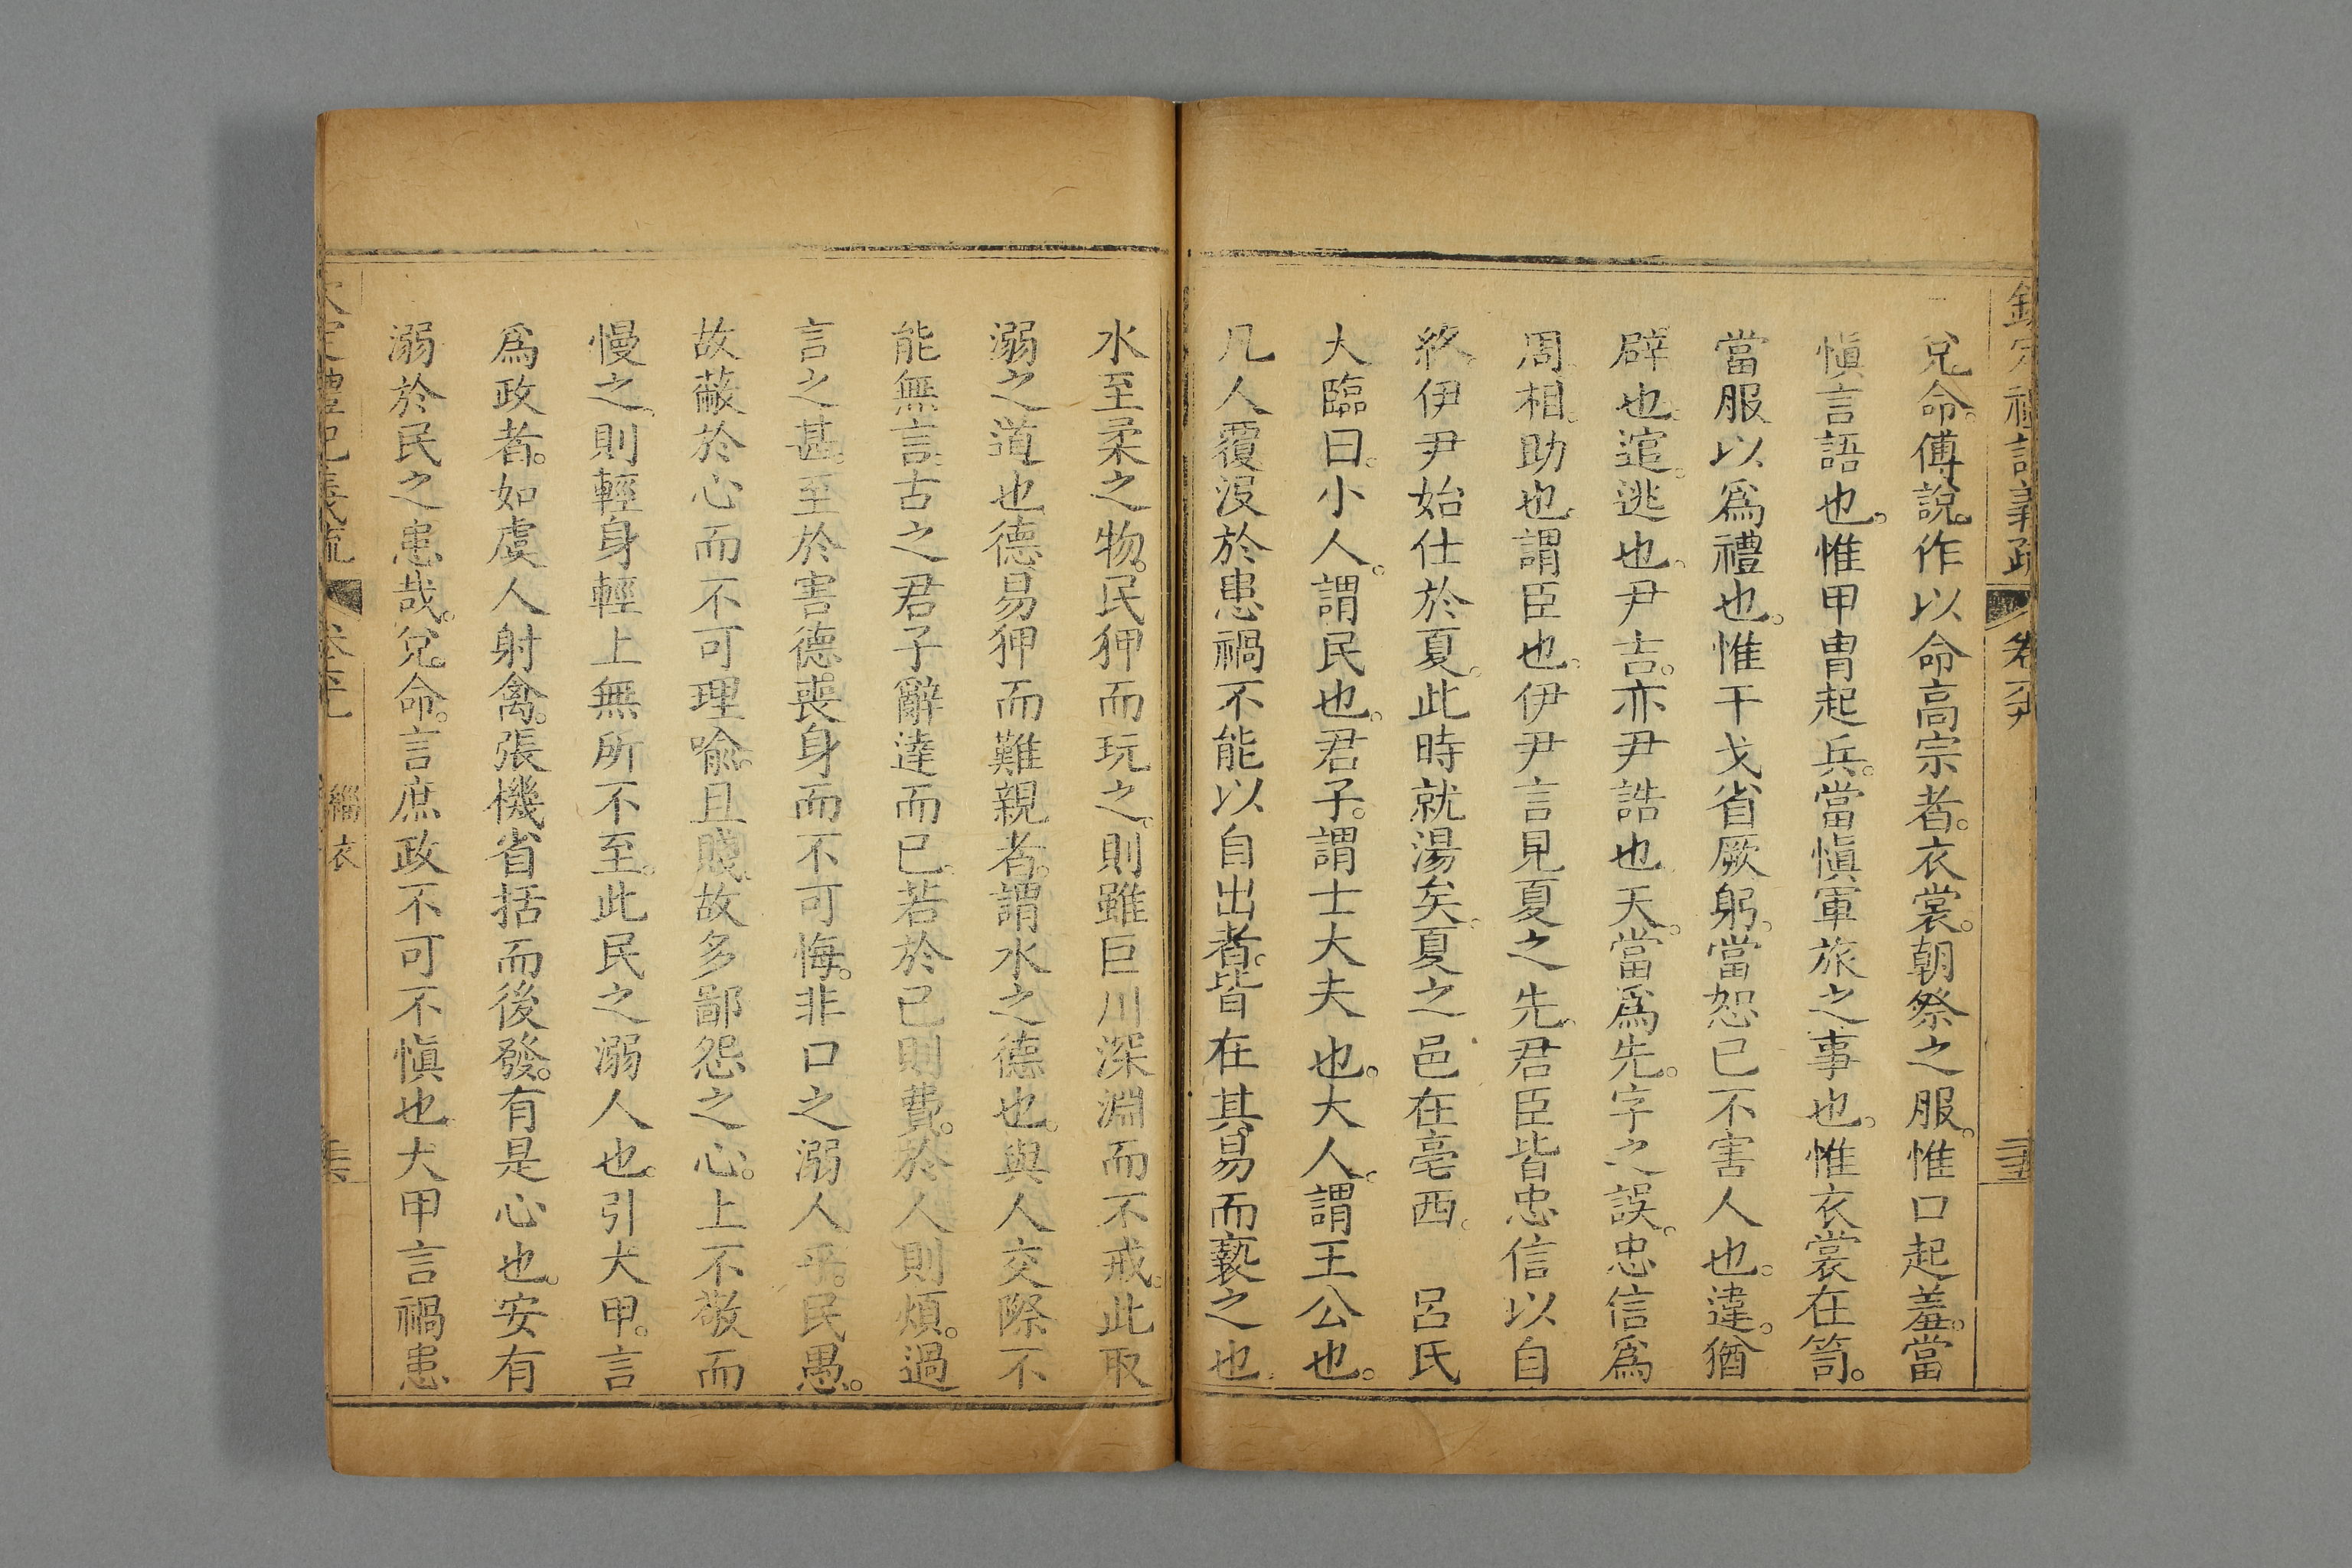 兌命傅說作以命高宗者衣裳朝祭之服惟口起羞當
愼言語也惟甲冑起兵當愼軍旅之事也惟衣裳在笥
當服以爲禮也惟干戈省厥躬當恕己不害人也違猶
辟也逭逃也尹吉亦尹誥也天當爲先字之誤忠信爲
周相助也謂臣也伊尹言見夏之先君臣皆忠信以自
終伊尹始仕於夏此時就湯矣夏之邑在亳西 呂氏
大臨曰小人謂民也君子謂士大夫也大人謂王公也
凡人覆沒於患禍不能以自出者皆在其易而褻之也
水至柔之物民狎而玩之則雖巨川深淵而不戒此取
溺之道也德易狎而難親者謂水之德也與人交際不
能無言古之君子辭達而已若於己則費於人則煩過
言之甚至於害德喪身而不可悔非口之溺人乎民愚
故蔽於心而不可理喻且賤故多鄙怨之心上不敬而
慢之則輕身輕上無所不至此民之溺人也引大甲言
爲政者如虞人射禽張機省括而後發有是心也安有
溺於民之患哉兌命言庶政不可不愼也大甲言禍患
緇衣